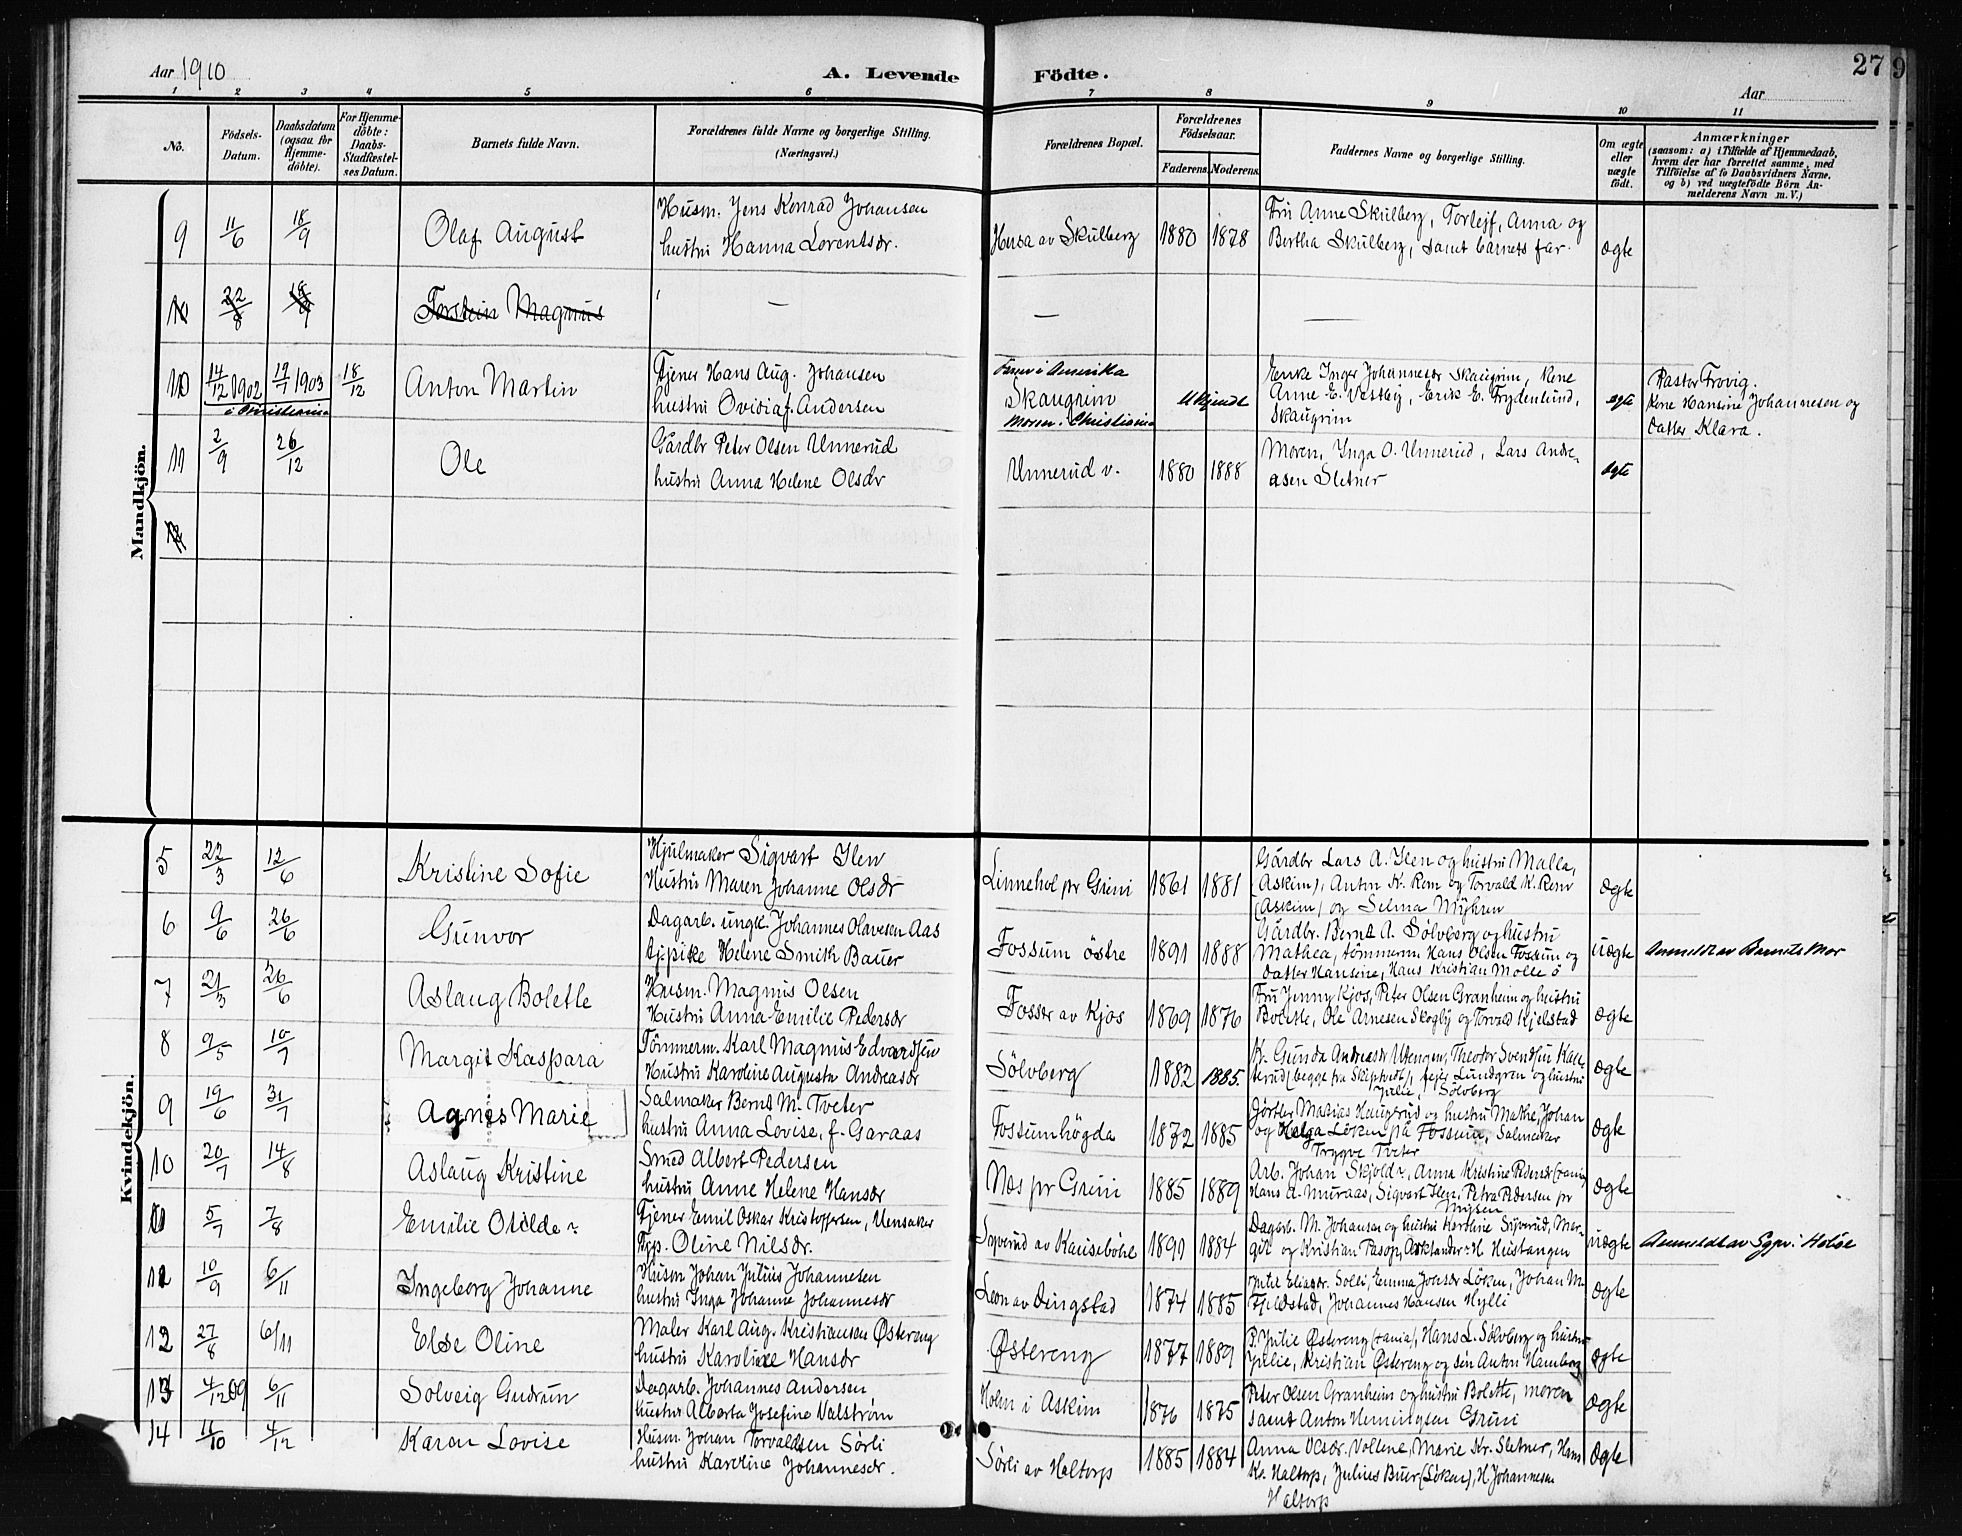 Aar 1910
A. Levende Födte.
27
9
Aar
1 2 3 4 5 6 7 8 9 10 11
No.
Födsels-Datum.
Daabsdatum (ogsaa for Hjemme-döbte).
For Hjemme-döbte: Daabs-Stadfæstel-ses Datum.
Barnets fulde Navn.
Forældrenes fulde Navne og borgerlige Stilling. (Næringsvei.)
Forældrenes Bopæl.
Forældrenes Födselsaar.
Faderens. Moderens.
Faddernes Navne og borgerlige Stilling.
Om ægte eller uægte födt.
Anmærkninger (saasom: a) i Tilfælde af Hjemmedaab, hvem der har forrettet samme, med Tilföielse af to Daabsvidners Navne, og b) ved uægtefödte Börn An-melderens Navn m. V.)
Mandkjön.
9 11/6 18/9 Olaf August
Husm. Jens Konrad Johansen
hustru Hanna Lorentsdr.
Husa av Skulberg 1880 1878
Fru Anne Skulberg, Torlejf, Anna og
Bertha Skulberg, samt barnets far.
ægte
10 22/8 18/9 Torstein Magnus — — —
10 14/12 1902 19/7 1903 18/12 Anton Martin
i Christiania
Tjener Hans Aug. Johansen
hustru Ovidia f. Andersen
Faren i Amerika
Skaugrim
Moren i Christiania
Ukjendt
Enke Inger Johannesdr Skaugrim, Kone
Anne E. Vestby, Erik E. Frydenlund,
Skaugrim
ægte
Pastor Frovig.
Kone Hansine Johannesen og
datter Klara.
11 2/9 26/12 Ole
Gårdbr Peter Olsen Unnerud
hustru Anna Helene Olsdr
Unnerud v. 1880 1888
Moren, Inga O. Unnerud, Lars Andre-
asen Sletner
ægte
12
Kvindekjön.
5 22/3 12/6 Kristine Sofie
Hjulmaker Sigvart Ilen
Hustru Maren Johanne Olsdr
Linnehol pr Grini 1861 1881
Gårdbr Lars A. Ilen og hustru Malla,
(Askim), Anton K. Rom og Torvald K. Rom
(Askim) og Selma Myhren
ægte
6 9/6 26/6 Gunvor
Dagarb. ungk. Johannes Olavesen Aas
tj.pike Helene Smith Bauer
Fossum östre 1891 1888
Gårdbr. Bernt A. Sølvberg og hustru
Mathea, tömmerm Hans Olsen Fossum og
datter Hansine, Hans Kristian Molle ö
uægte
Anmeldt av Barnets Mor
7 21/3 26/6 Aslaug Bolette
Husm. Magnus Olsen
Hustru Anna Emilie Pedersdr
Fosser av Kjos 1869 1876
Fru Jenny Kjos, Peter Olsen Granheim og hustru
Bolette, Ole Arnesen Skogly og Torvald Kjelstad
ægte
8 9/5 10/7 Margit Kaspara
Tömmerm. Karl Magnus Edvardsen
Hustru Karoline Augusta Andreasdr
Sölvberg 1882 1885.
K. Gunda Andreasdr Utengen, Theodor Svendsen Kal-
terud (begge fra Skiptvedt), Lundgren og hustru
Julie, Sölvberg
ægte
9 19/6 31/7 Agnes Marie
Salmaker Bernt M. Tveter
hustru Anna Lovise, f. Garaas
Fossumhögda 1872 1885
Gjörtler Matias Haugerud og hustru Mathe, Johan
og Helga Löken på Fossum, Salmaker
Trygve Tveter
ægte
10 20/7 14/8 Aslaug Kristine
Smed Albert Pedersen
hustru Anne Helene Hansdr
Næs pr Grini 1885 1889
Arb. Johan Skjold, Anna Kristine Pedersdr
Hans A. Muraas, Sigvart Ilen, Petra Pedersen pr
Mysen
ægte
11 5/7 7/8 Emilie Otilde
Tjener Emil Oskar Kristoffersen, Uensaker
Tjp. Oline Nilsdr.
Syverud av Kausebøhl 1891 1884
Dagarb. M. Johansen og hustru Karoline Syverud, Mar-
git og Kristian Pasop, H Hustangen
uægte
Anmeldt av Hobøl
12 10/9 6/11 Ingeborg Johanne
Husm Johan Julius Johannesen
hustru Inga Johanne Johannesdr
Leon av Dingstad 1874 1885
Eliasdr. Solli, Emma Johsdr Löken, Johan M.
Fjeldstad, Johannes Hansen Hylli
ægte
12 27/8 6/11 Else Oline
Maler Karl Aug. Kristiansen Østereng
hustru Karoline Hansdr
Østereng 1877 1889
P. Julie Østereng, Hans L. Sølvberg og hustru
Julie, Kristian Østereng og sön Anton Hamborg
ægte
13 4/12 09 6/11 Solveig Gudrun
Dagarb. Johannes Andersen,
hustru Alberta Josefine Valström
Holm i Askim 1876 1875
Peter Olsen Granheim og hustru Bolette, moren
samt Anton Henningsen Grini
ægte
14 11/10 4/12 Karen Lovise
Husm. Johan Torvaldsen Sörli
hustru Karoline Johannesdr.
Sörli av Haltorp 1885 1884
Anna Olsdr. Vollene, Marie Kr. Sletner, Hans
Kr. Haltorp, Julius Buer (Löken), H. Johannesen
Haltorp
ægte